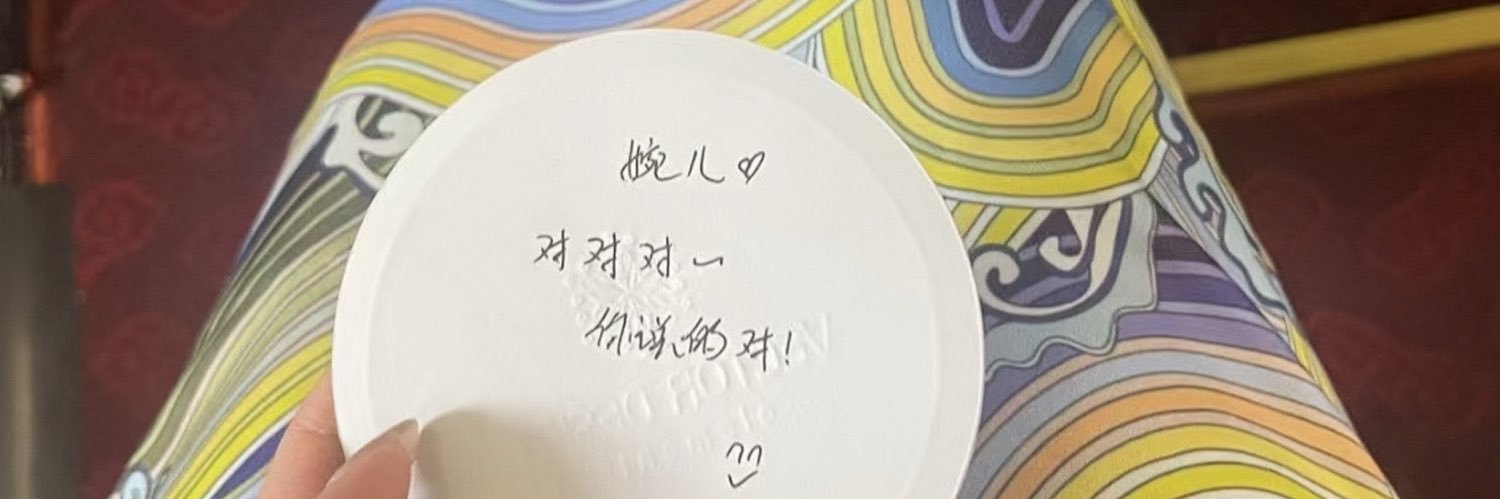 婉儿♡
对对对~
你说的对!